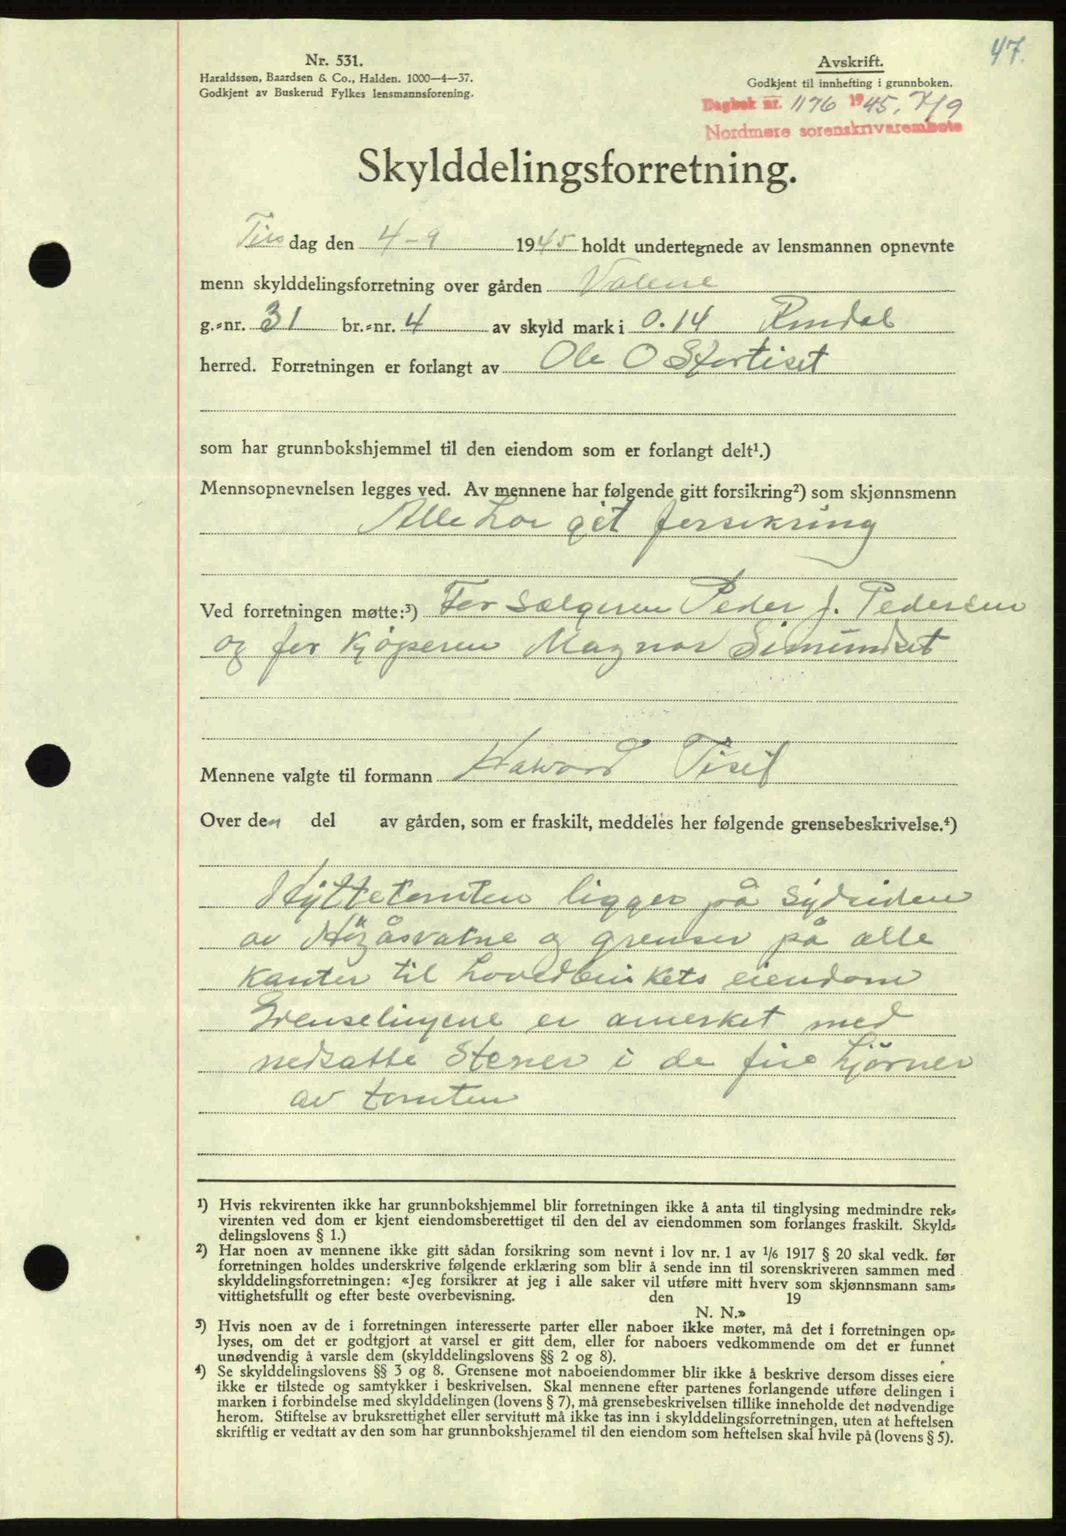 47.
Nr. 531.
Haraldssøn, Baardsen & Co., Halden. 1000—4—37.
Godkjent av Buskerud Fylkes lensmannsforening.
Avskrift.
Godkjent til innhefting i grunnboken.
Dagbok nr. 1176 1945, 7/9
Nordmøre sorenskriverembete
Skylddelingsforretning.
Tirsdag den 4-9 1945 holdt undertegnede av lensmannen opnevnte
menn skylddelingsforretning over gården
g.-nr. 31 br.-nr. 4 av skyld mark i 0.14 Rindal
herred. Forretningen er forlangt av Ole O
som har grunnbokshjemmel til den eiendom som er forlangt delt¹.)
Mennsopnevnelsen legges ved. Av mennene har følgende gitt forsikring²) som skjønnsmenn
Alle har git forsikring
Ved forretningen møtte:³) For Sælgeren Peder J. Pedersen
og for Kjøperen Magnar Simundset
Mennene valgte til formann Havard Tiset
Over den del av gården, som er fraskilt, meddeles her følgende grensebeskrivelse.⁴)
Hyttetomten ligger på Sydsiden
av Høgåsvatne og grenser på alle
kanter til hovedbrukets eiendom
Grenselinjene er amerket med
nedsatte Stener i de fire hjørner
av tomten
¹) Hvis rekvirenten ikke har grunnbokshjemmel blir forretningen ikke å anta til tinglysing medmindre rek-
virenten ved dom er kjent eiendomsberettiget til den del av eiendommen som forlanges fraskilt. Skyld-
delingslovens § 1.)
²) Har noen av mennene ikke gitt sådan forsikring som nevnt i lov nr. 1 av 1/6 1917 § 20 skal vedk. før
forretningen holdes underskrive følgende erklæring som blir å sende inn til sorenskriveren sammen med
skylddelingsforretningen: «Jeg forsikrer at jeg i alle saker vil utføre mitt hverv som skjønnsmann sam-
vittighetsfullt og efter beste overbevisning. den 19
N. N.»
³) Hvis noen av de i forretningen interesserte parter eller naboer ikke møter, må det i forretningen op-
lyses, om det er godtgjort at varsel er gitt dem, eller for naboers vedkommende om det er funnet
unødvendig å varsle dem (skylddelingslovens §§ 2 og 8).
⁴) Se skylddelingslovens §§ 3 og 8. Grensene mot naboeiendommer blir ikke å beskrive dersom disses eiere
ikke er tilstede og samtykker i beskrivelsen. Skal mennene efter partenes forlangende utføre delingen i
marken i forbindelse med skylddelingen (lovens § 7), må grensebeskrivelsen tillike inneholde det nødvendige
herom. Stiftelse av bruksrettighet eller servitutt må ikke tas inn i skylddelingsforretningen, uten at heftelsen
skriftlig er vedtatt av den som har grunnbokshjemmel til den eiendom som heftelsen skal hvile på (lovens § 5).